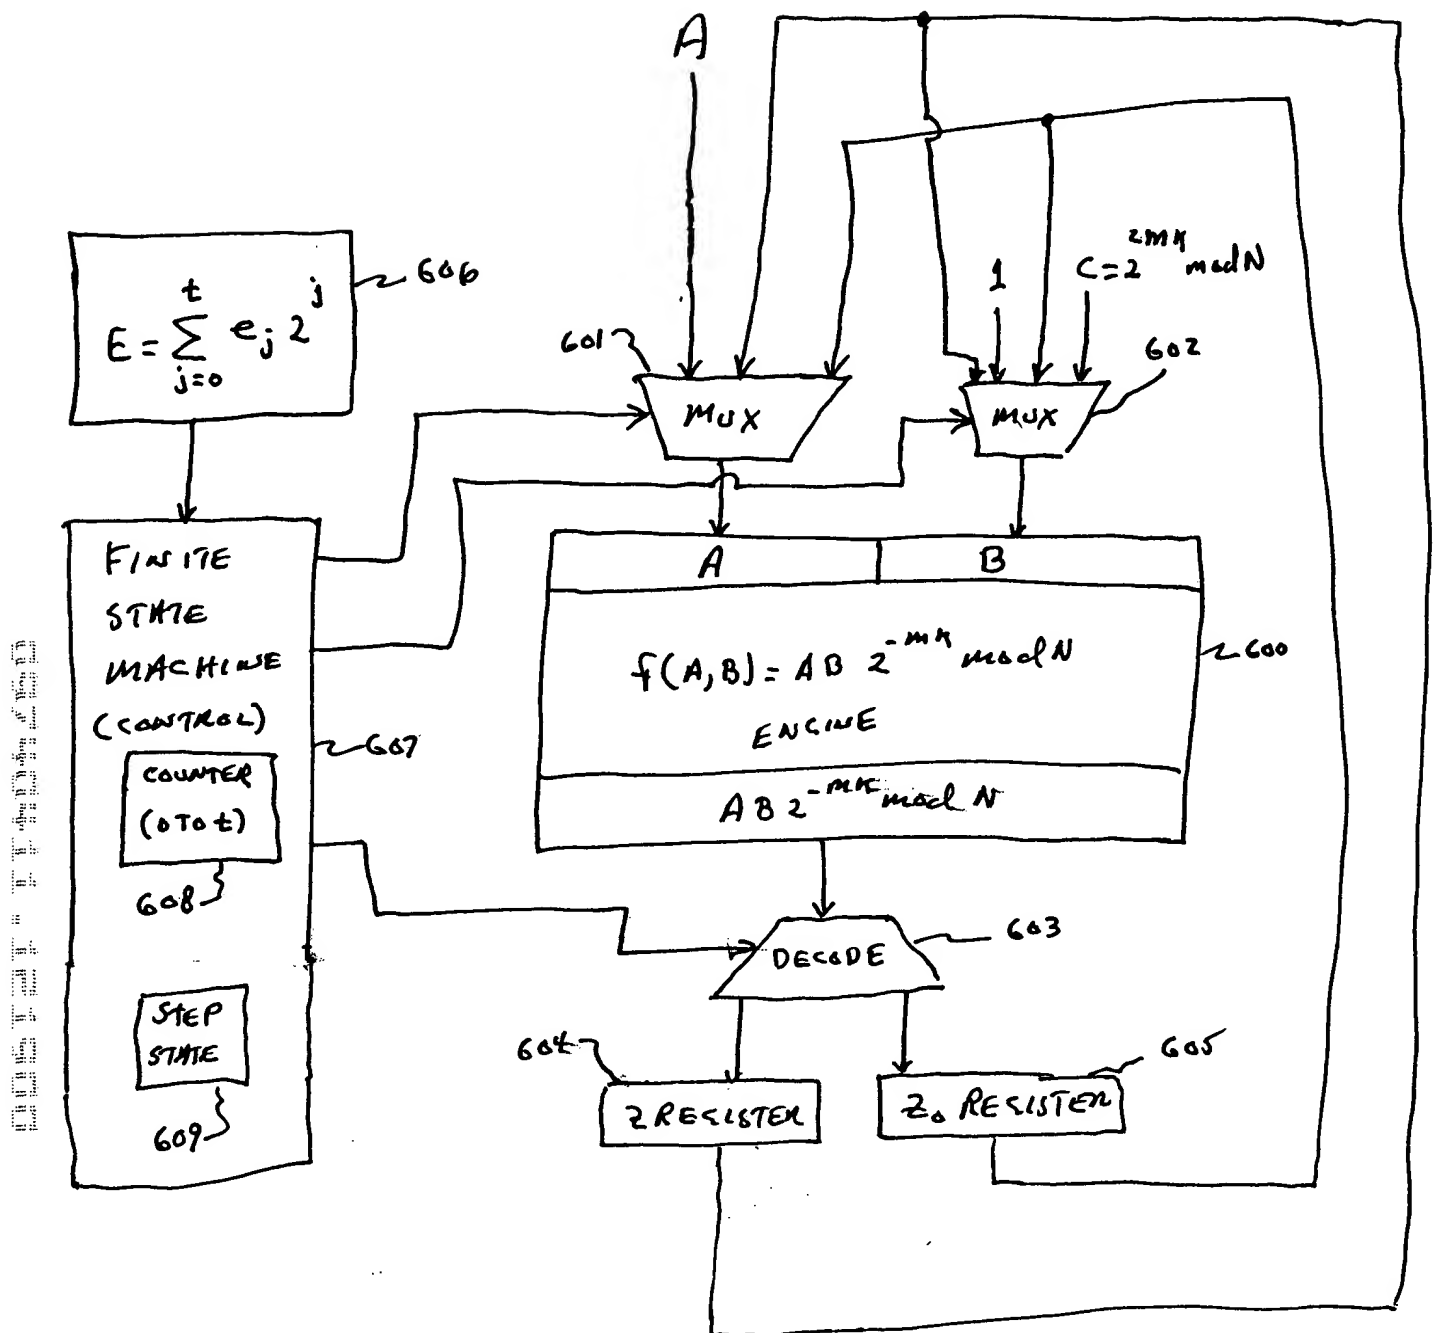 A
E = t∑j=0 e_j 2^j
606
1
C = 2^{2mk} mod N
601
MUX
602
MUX
FINITE
STATE
MACHINE
(CONTROL)
607
COUNTER
(0 TO t)
608
STEP
STATE
609
A
B
f(A,B) = AB 2^{-mk} mod N
ENGINE
600
AB 2^{-mk} mod N
DECODE
603
604
Z REGISTER
605
Z₀ REGISTER